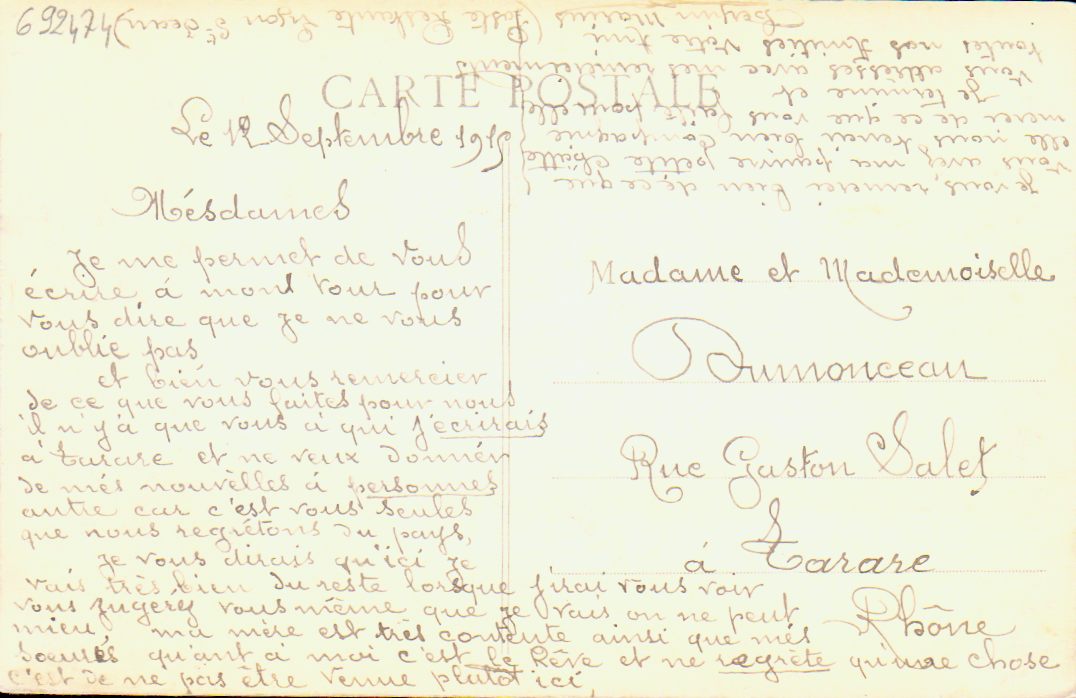 692474
CARTE POSTALE
Le 12 Septembre 1915
Mésdames
Je me permet de vous
écrire á mont tour pour
vous dire que je ne vous
oublie pas
et bien vous remercier
de ce que vous faites pour nous
il n'y á que vous á qui j'écrirais
á Tarare et ne veux donnér
de més nouvélles á personnes
autre car c'est vous seules
que nous regrétons du pays,
je vous dirais qu'ici je
vais très bien du reste lorsque j'irai vous voir
vous jugérez vous même que je vais on ne peut
mieu, ma mère est très contente ainsi que més
soeures qu'ant á moi c'est le Rêve et ne regrète qu'une chose
c'est de ne pas être venue plutot ici,
Madame et Mademoiselle
Dumonceau
Rue Gaston Salet
á Tarare
Rhône
Je vous remerci bien de ce que
vous avez, ma pauvre petite chatte
elle nous tenait bien compagnie
merci de ce que vous faits pour elle
Je termine et
vous adresses avec mes remerciements
toutes nos Amitiés Votre Ami
Marius (Poste Restante Lyon St Jean)